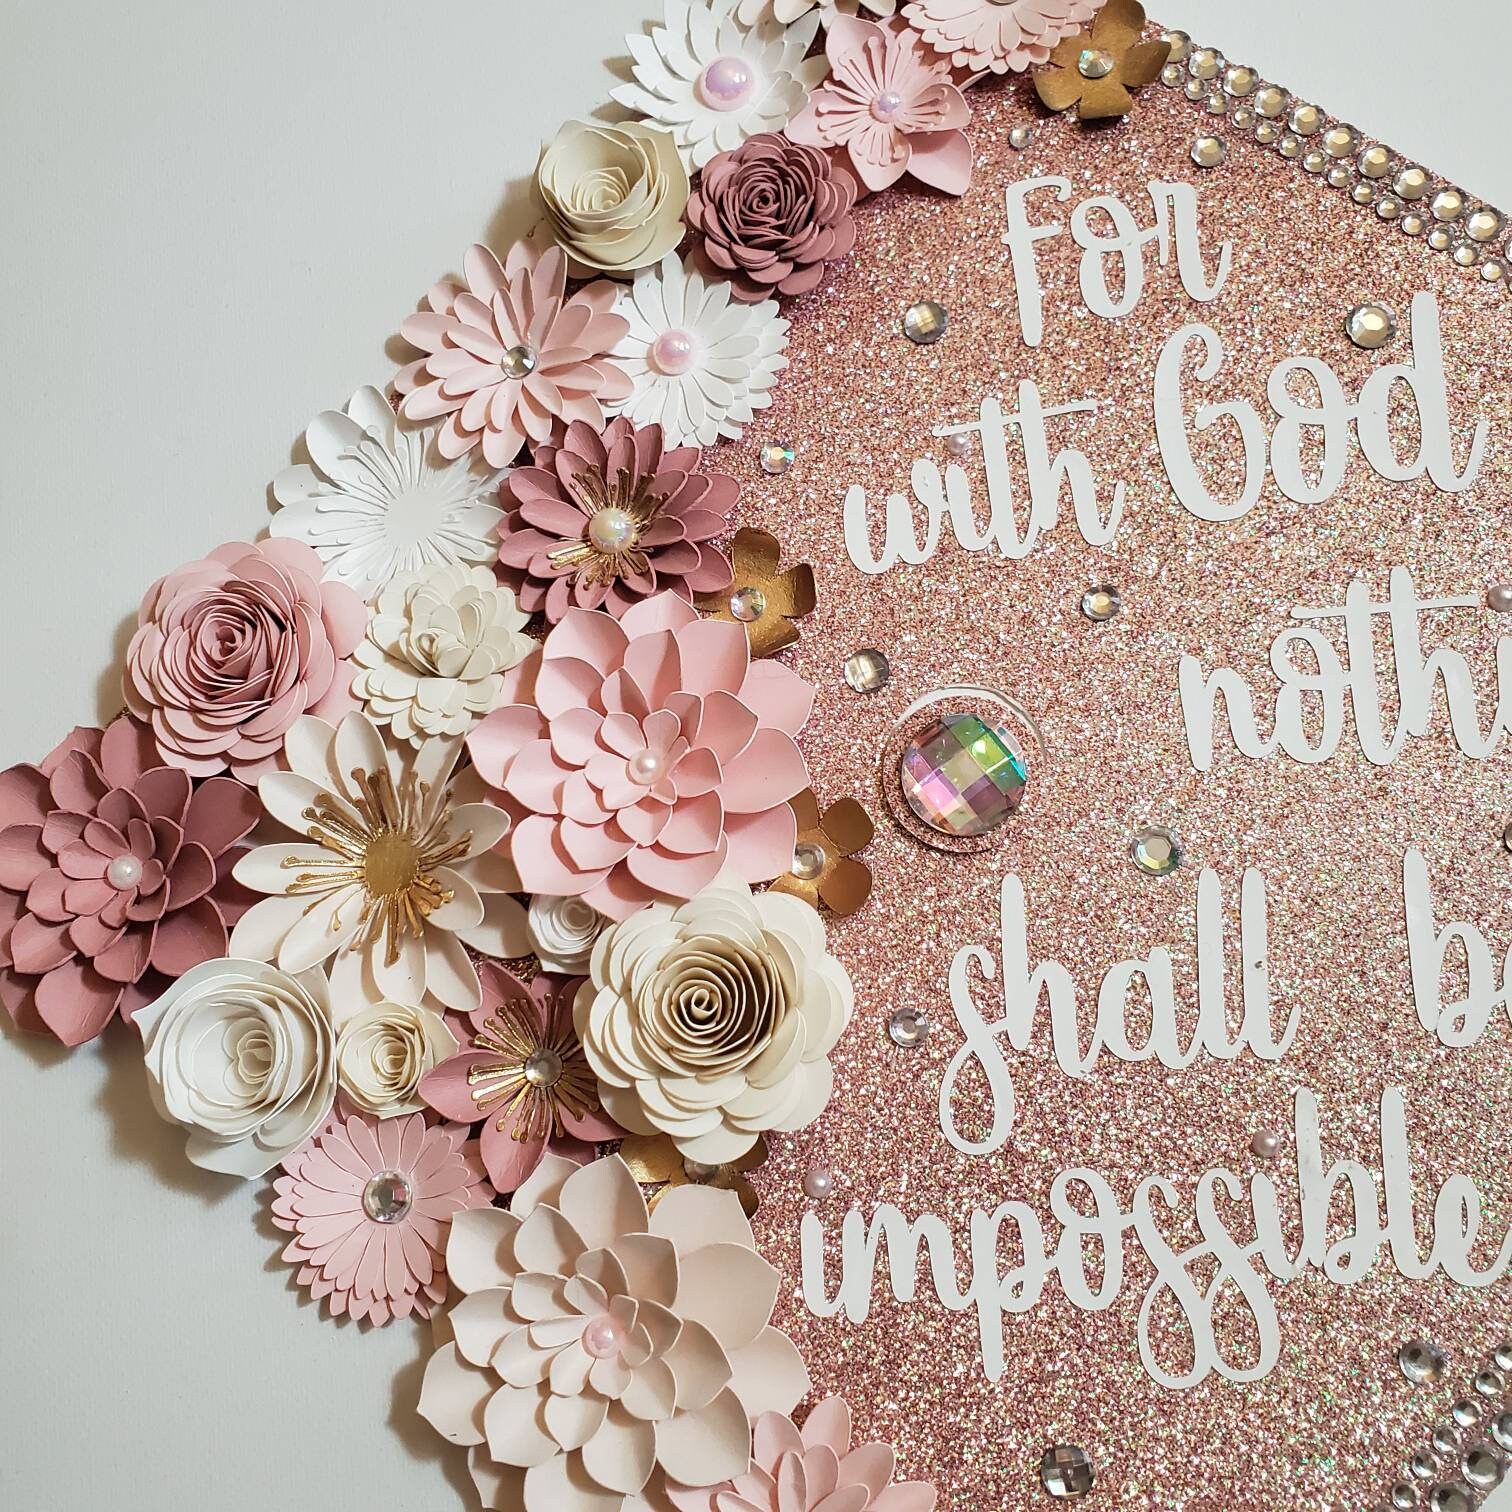 For
with God
noth
shall be
impossible